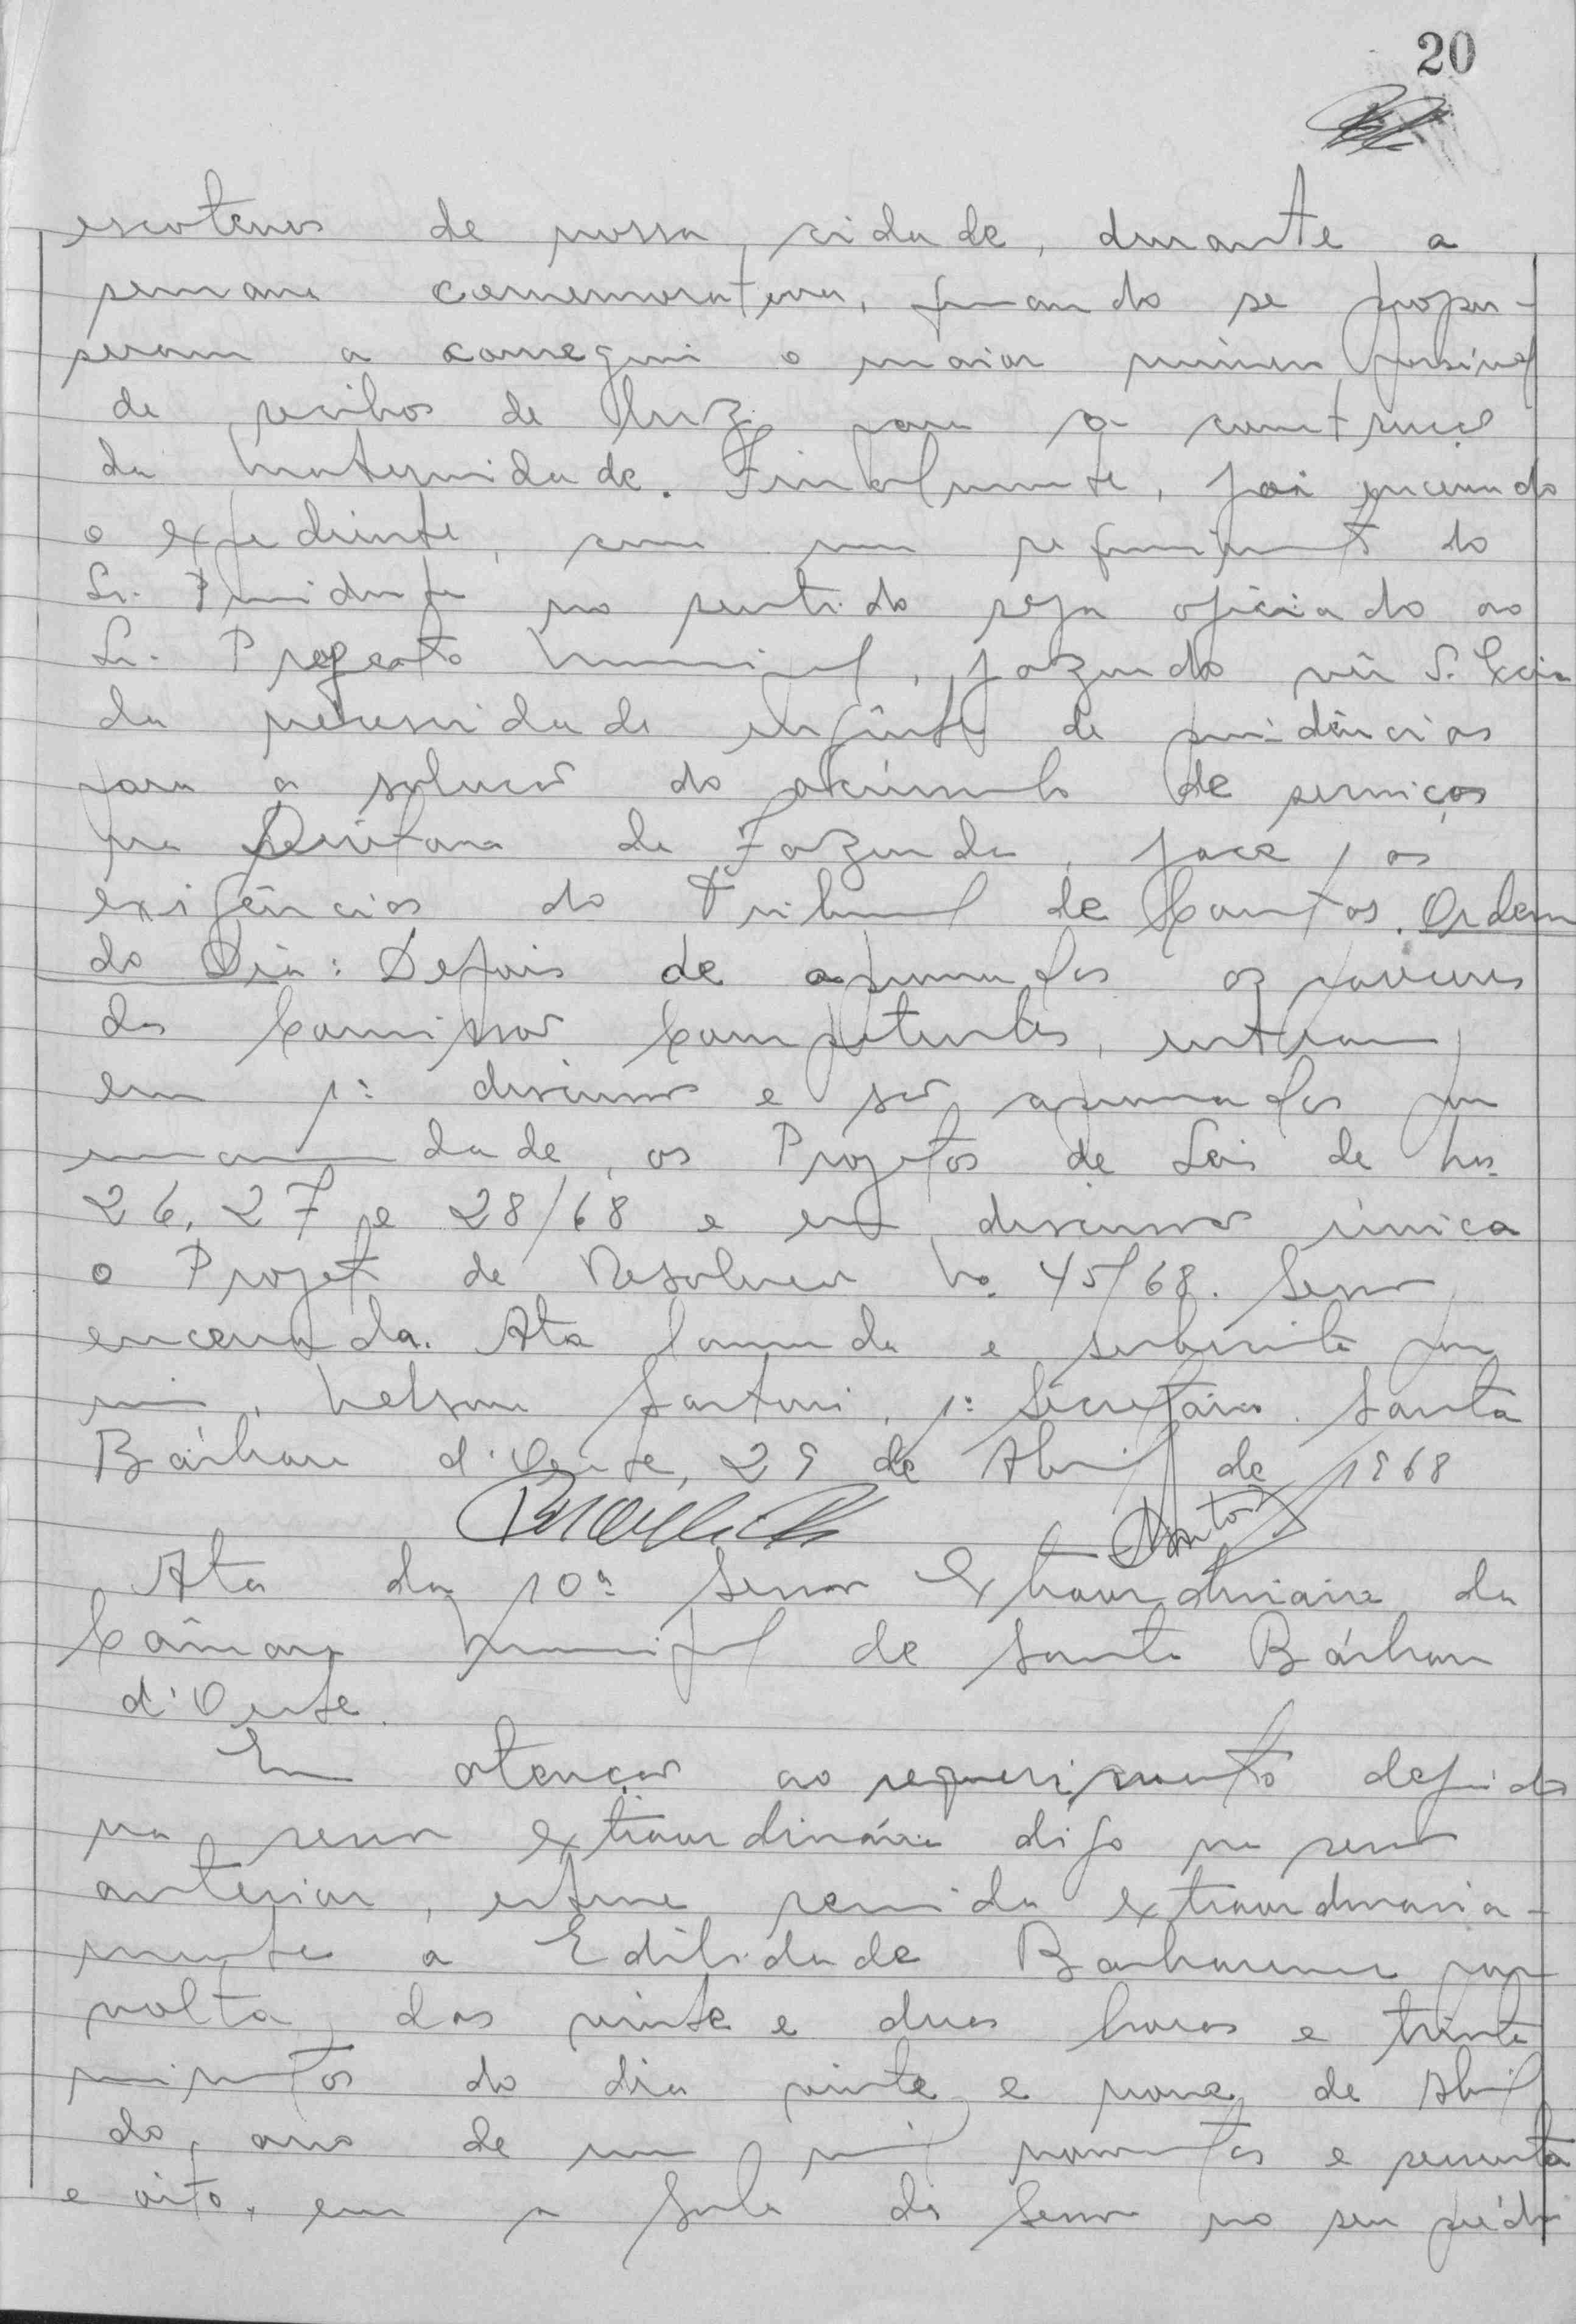 20
escoteiros de nossa cidade, durante a
semana comemorativa, quando se propu-
seram a conseguir o maior número possível
de recibos de luz para a construção
da Maternidade. Finalmente, foi encerrado
o expediente, com um requerimento do
Sr. Presidente no sentido seja oficiado ao
Sr. Prefeito Municipal, fazendo vêr S. Excia
da necessidade urgente de providências
para a solução do acúmulo de serviços
na Diretoria da Fazenda, face as
exigências do Tribunal de Contas. Ordem
do Dia: Depois de aprovados os pareceres
das Comissões Competentes, entram
em 1ª discussão e são aprovados por
unanimidade, os Projetos de Leis de nos.
26, 27 e 28/68 e em discussão única
o Projeto de Resolução no. 45/68. Sessão
encerrada. Ata lavrada e subscrita por
mim, Nelson Santoni, 1º Secretário. Santa
Bárbara d'Oeste, 29 de Abril de 1968
Ata da 10ª Sessão Extraordinária da
Câmara Municipal de Santa Bárbara
d'Oeste.
Em atenção ao requerimento deferido
na sessão extraordinária digo na sessão
anterior, esteve reunida extraordinaria-
mente a Edilidade Barbarense por
volta das vinte e duas horas e trinta
minutos do dia vinte e nove de Abril
do ano de um mil novecentos e sessenta
e oito, em a Sala de Sessão no seu prédio